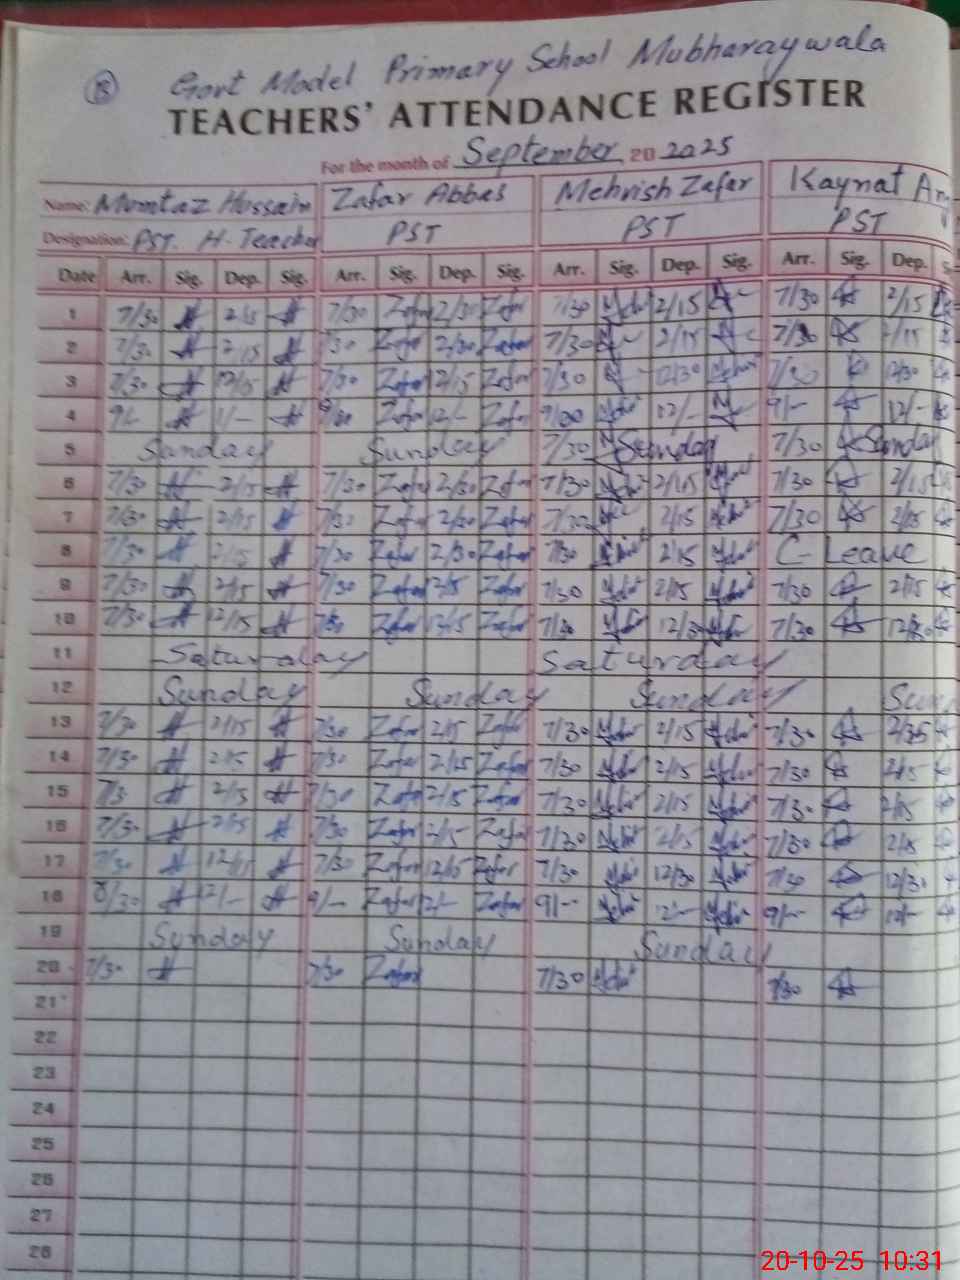 Govt Model Primary School Mubharaywala
TEACHERS' ATTENDANCE REGISTER
For the month of September 20 2025
Name: Momtaz Hossain Zafar Abbas Mehvish Zafar Kaynat
Designation: PST. H-Teacher PST PST PST
Date Arr. Sig. Dep. Sig. Arr. Sig. Dep. Sig. Arr. Sig. Dep. Sig. Arr. Sig. Dep.
1 7/30 2/15 7/30 Zafar 2/30 Zafar 7/30 2/15 7/30 2/15
2 7/30 2/15 Zafar 2/30 Zafar 7/30 2/15 7/30 2/15
3 7/30 12/15 7/30 Zafar 12/15 Zafar 7/30 12/30 7/30 12/30
4 9/- 1/- Zafar 12/- Zafar 9/00 12/- 9/- 12/-
5 Sunday Sunday 7/30 Sunday 7/30 Sunday
6 7/30 2/15 7/30 Zafar 2/30 Zafar 7/30 2/15 7/30 2/15
7 7/30 2/15 7/30 Zafar 2/30 Zafar 7/30 2/15 7/30 2/15
8 7/30 2/15 7/30 Zafar 2/30 Zafar 7/30 2/15 C-Leave
9 7/30 2/15 7/30 Zafar 2/15 Zafar 7/30 2/15 7/30 2/15
10 7/30 12/15 7/30 Zafar 12/15 Zafar 7/30 7/30
11 Saturday Saturday
12 Sunday Sunday Sunday Sun
13 7/30 2/15 7/30 Zafar 2/15 Zafar 7/30 2/15 7/30
14 7/30 2/15 7/30 Zafar 2/15 Zafar 7/30 2/15 7/30 2/15
15 7/3 2/15 7/30 Zafar 2/15 Zafar 7/30 2/15 7/30 2/15
16 7/30 2/15 7/30 Zafar 2/15 Zafar 7/30 2/15 7/30 2/15
17 7/30 12/15 7/30 Zafar 12/15 Zafar 7/30 12/30 7/30 12/30
18 8/30 12/- 9/- Zafar 12/- Zafar 9/- 12/- 9/-
19 Sunday Sunday Sunday
20 7/30 7/30 Zafar 7/30 7/30
21
22
23
24
25
26
27
28
20-10-25 10:31